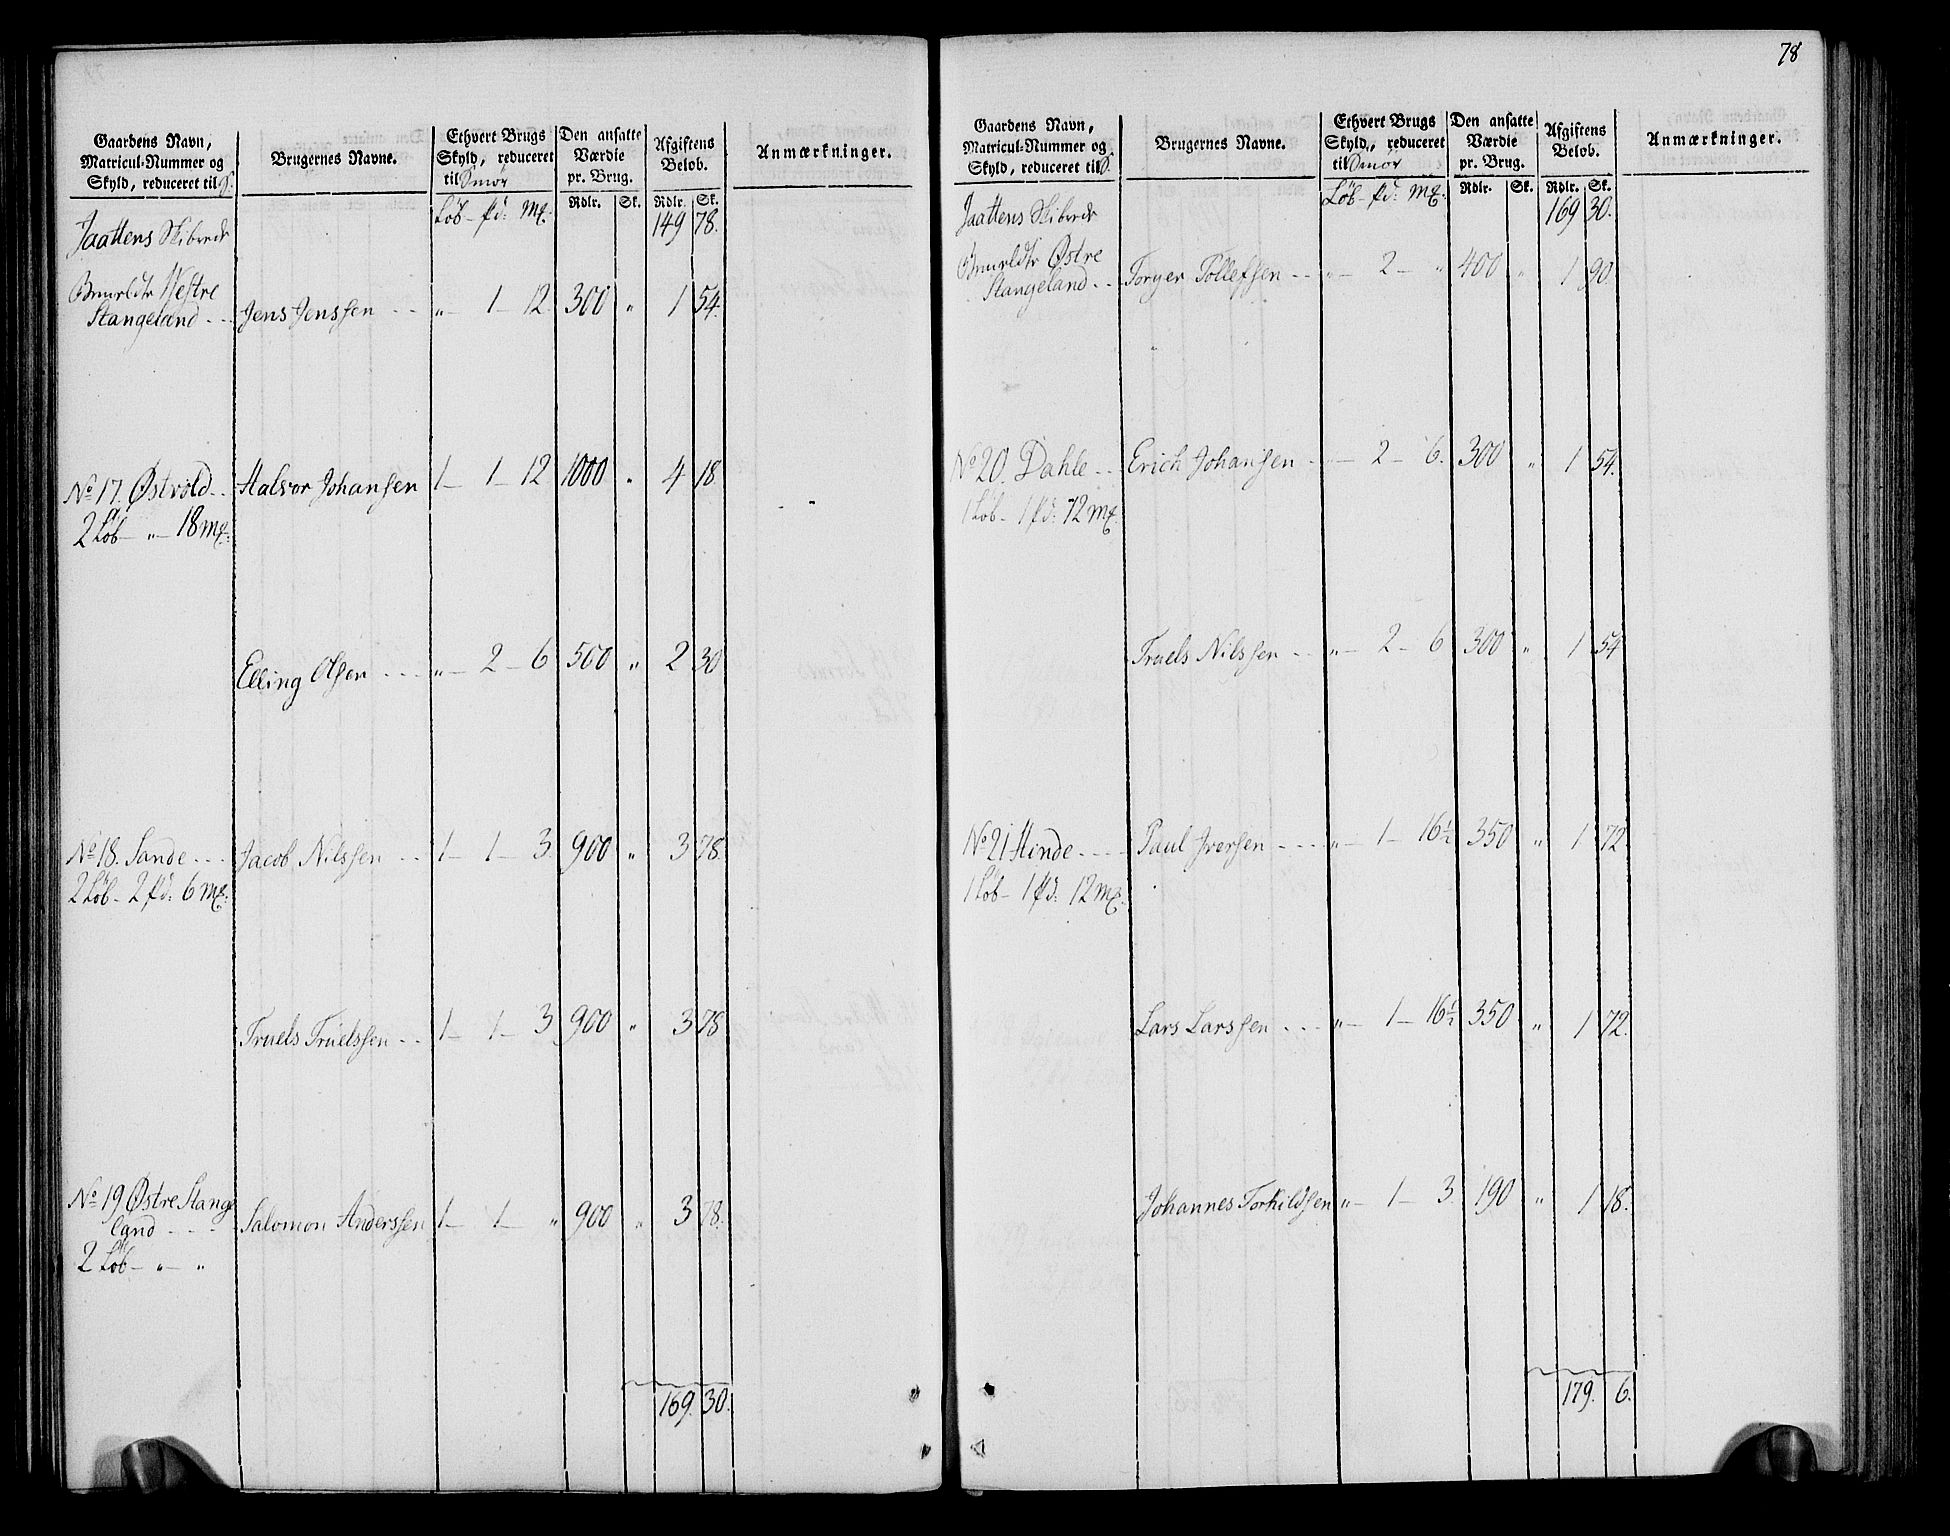 Gaardens Navn,
Matricul-Nummer og
Skyld, reduceret til S.
Brugernes Navne.
Ethvert Brugs
Skyld, reduceret
til Smör
Den ansatte
Værdie
pr. Brug.
Afgiftens
Belob.
Anmærkninger.
Löb - pd: Mk.
Rdlr. Sk. Rdlr. Sk.
Jaattens Skibrede 149 78.
Westre
Stangeland - - Jens Jenssen - - „ - 1 - 12. 300 „ 1 54.
No 17. Østvold - - Halvor Johansen 1 - 1 - 12 1000 „ 4 18.
2 Löb - „ - 18 Mk.
Elling Olsen - - - „ - 2 - 6 500 „ 2 30
No 18. Sande - - - Jacob Nilssen - - 1 - 1 - 3. 900 „ 3 78.
2 Löb - 2 pd: 6 Mk.
Truels Truelssen - - 1 - 1 - 3 900 „ 3 78
No 19 Østre Stange
land - - - Salomon Anderssen 1 - 1 - „ 900 „ 3 78.
2 Löb - „ - „
169. 30.
78
Gaardens Navn,
Matricul-Nummer og
Skyld, reduceret til S.
Brugernes Navne.
Ethvert Brugs
Skyld, reduceret
til Smör
Den ansatte
Værdie
pr. Brug.
Afgiftens
Belob.
Anmærkninger.
Löb - pd: Mk.
Rdlr. Sk. Rdlr. Sk.
Jaattens Skibrede 169 30.
Østre
Stangeland - - Torger Tollefsen - - „ - 2 - „ 400 „ 1 90.
No 20. Dahle - - Erich Johansen - „ - 2 - 6. 300 „ 1 54.
1 Löb - 1 pd: 12 Mk.
Truels Nilssen - - „ - 2 - 6 300 „ 1 54
No 21 Hinde - - - Paul Iversen - - - „ - 1 - 16½ 350 „ 1 72.
1 Löb - 1 pd: 12 Mk.
Lars Larssen - - - „ - 1 - 16½ 350 „ 1 72.
Johannes Torkildsen „ - 1 - 3. 190 „ 1 18.
179. 6.